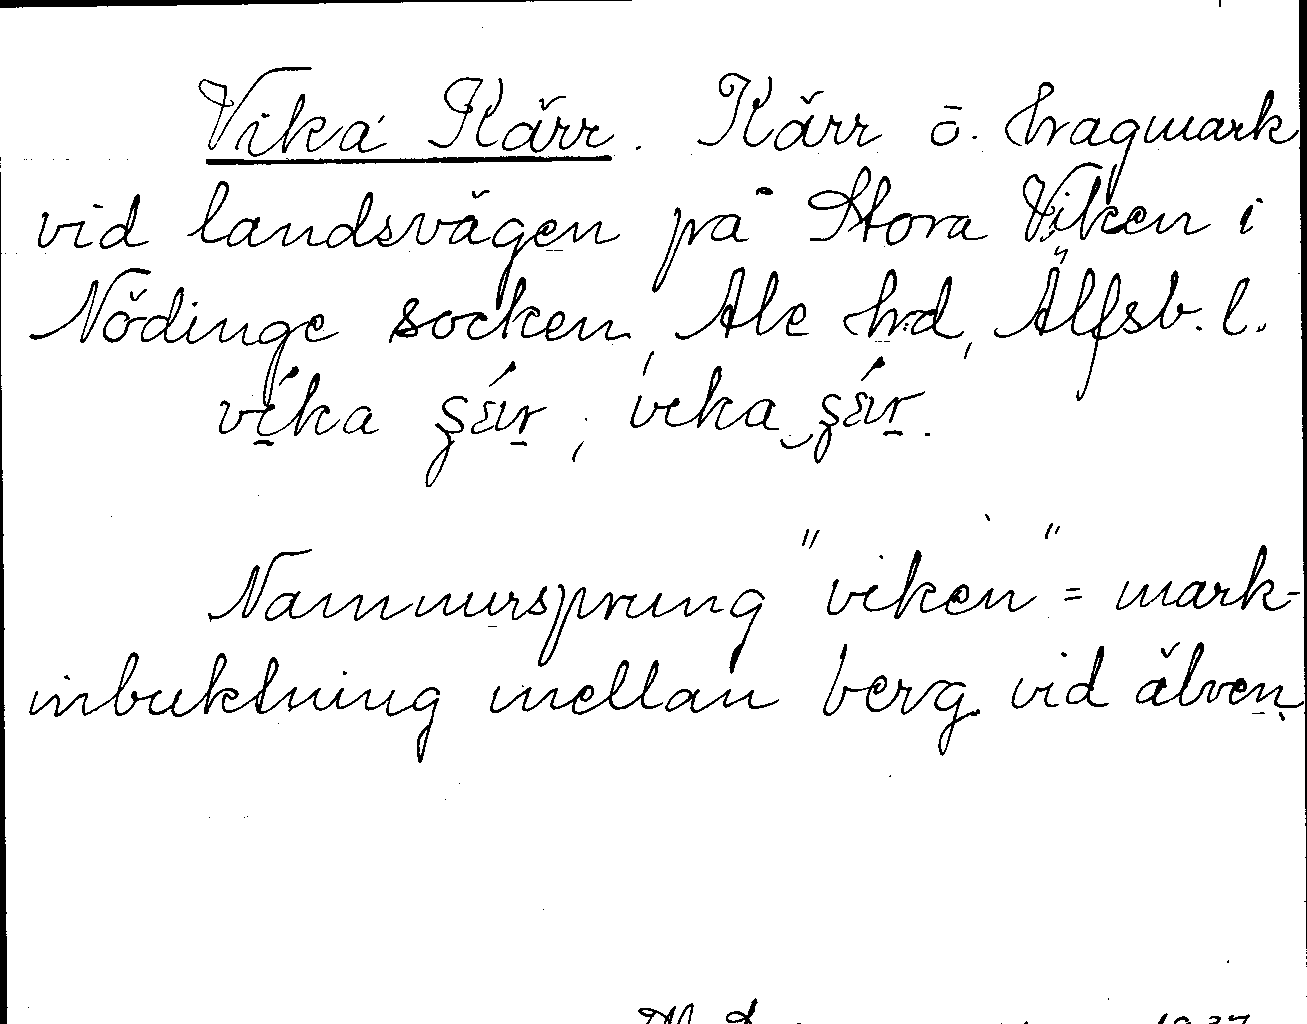 Vika Kärr. Kärr o. hagmark
vid landsvägen på Stora Viken i
Nödinge socken, Ale hd, Älfsb. l.
víka şǽr ; vika şǽr.
Namnursprung "viken" = mark-
inbuktning mellan berg vid älven.